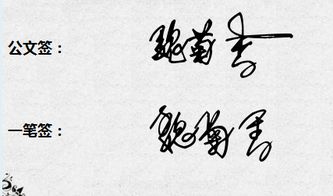 公文签：魏菊香
一笔签：魏菊香